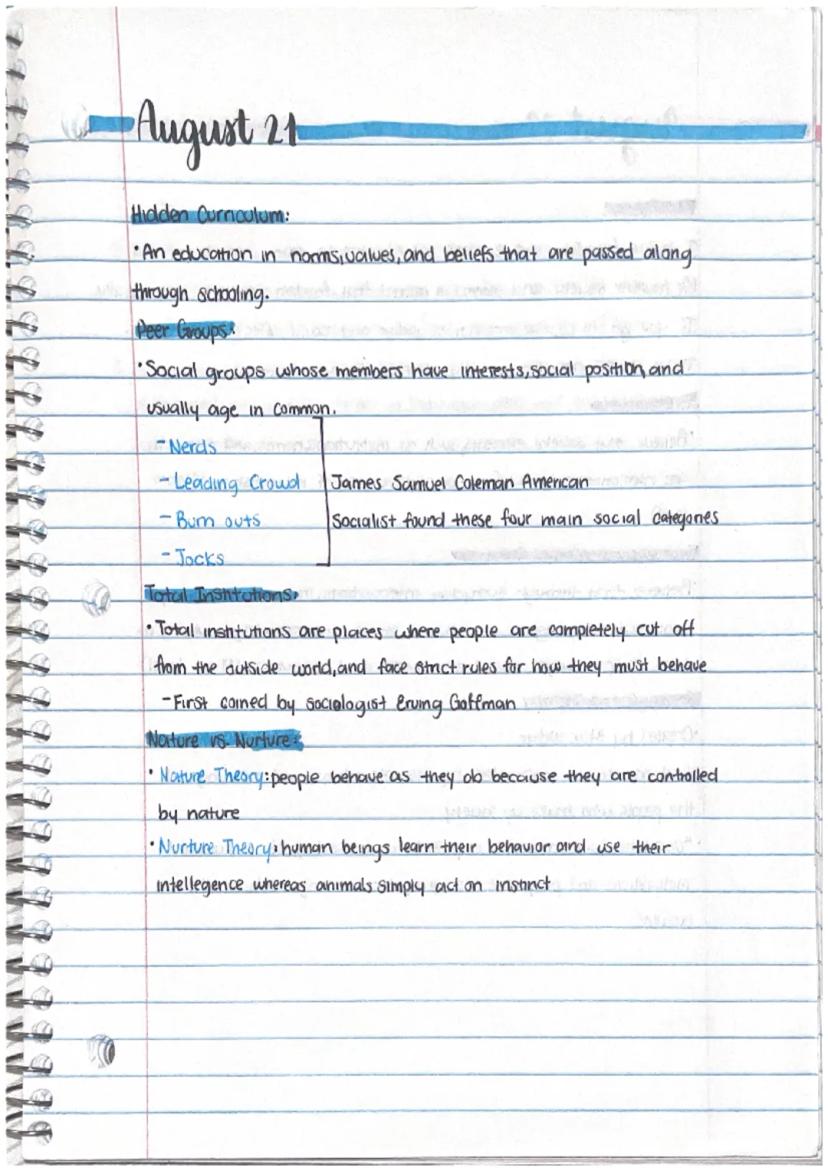 August 21
Hidden Curriculum:
• An education in norms, values, and beliefs that are passed along
through schooling.
Peer Groups:
• Social groups whose members have interests, social position, and
usually age in common.
- Nerds
- Leading Crowd
James Samuel Coleman American
- Burn outs
Socialist found these four main social categories
- Jocks
Total Institutions:
• Total institutions are places where people are completely cut off
from the outside world, and face strict rules for how they must behave
- First coined by sociologist Erving Goffman
Nature vs. Nurture:
• Nature Theory: people behave as they do because they are controlled
by nature
• Nurture Theory: human beings learn their behavior and use their
intellegence whereas animals simply act on instinct